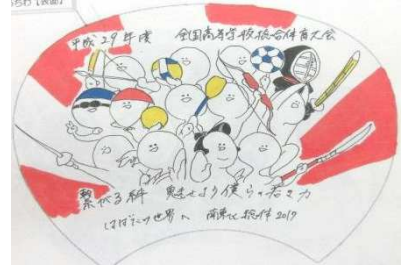 うちわ【表面】
平成29年度 全国高等学校総合体育大会
繋がる絆 魅せよう僕らの若き力
はばたけ世界へ 南東北総体2017